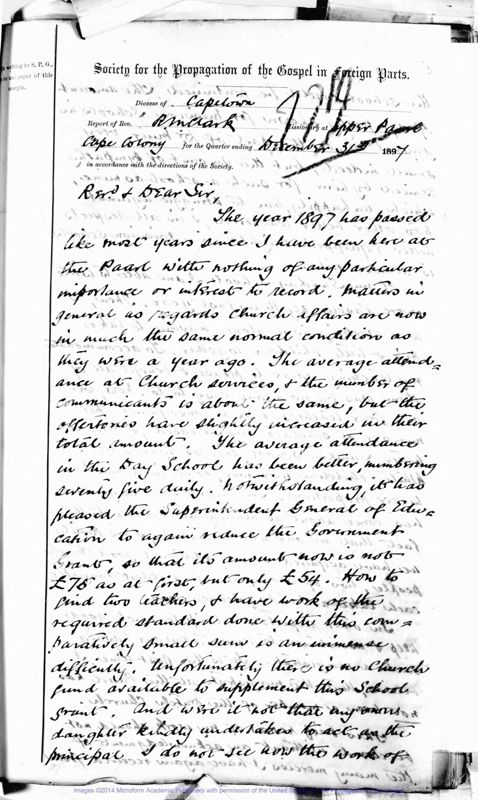 n writing to S. P. G.,
paper of this
margin.
Society for the Propagation of the Gospel in Foreign Parts.
1714
Diocese of Capetown
Report of Rev. Clark Missionary at Upper Paarl
Cape Colony for the Quarter ending December 31st 1897
in accordance with the directions of the Society.
Revd & Dear Sir,
The year 1897 has passed
like most years since I have been here at
the Paarl with nothing of any particular
importance or interest to record. Matters in
general as regards Church affairs are now
in much the same normal condition as
they were a year ago. The average attend=
ance at Church services, & the number of
communicants is about the same, but the
offertories have slightly increased in their
total amount. The average attendance
in the Day School has been better, numbering
seventy five daily. Notwithstanding, it has
pleased the Superintendent General of Edu=
cation to again reduce the Government
Grant, so that its amount now is not
£75 as at first, but only £54. How to
find two teachers, & have work of the
required standard done with this com=
paratively small sum is an immense
difficulty. Unfortunately there is no Church
fund available to supplement this School
grant. And were it not that my own
daughter kindly undertakes to act as the
principal I do not see how the work of
Images ©2014 Microform Academic Publishers with permission of the United Society